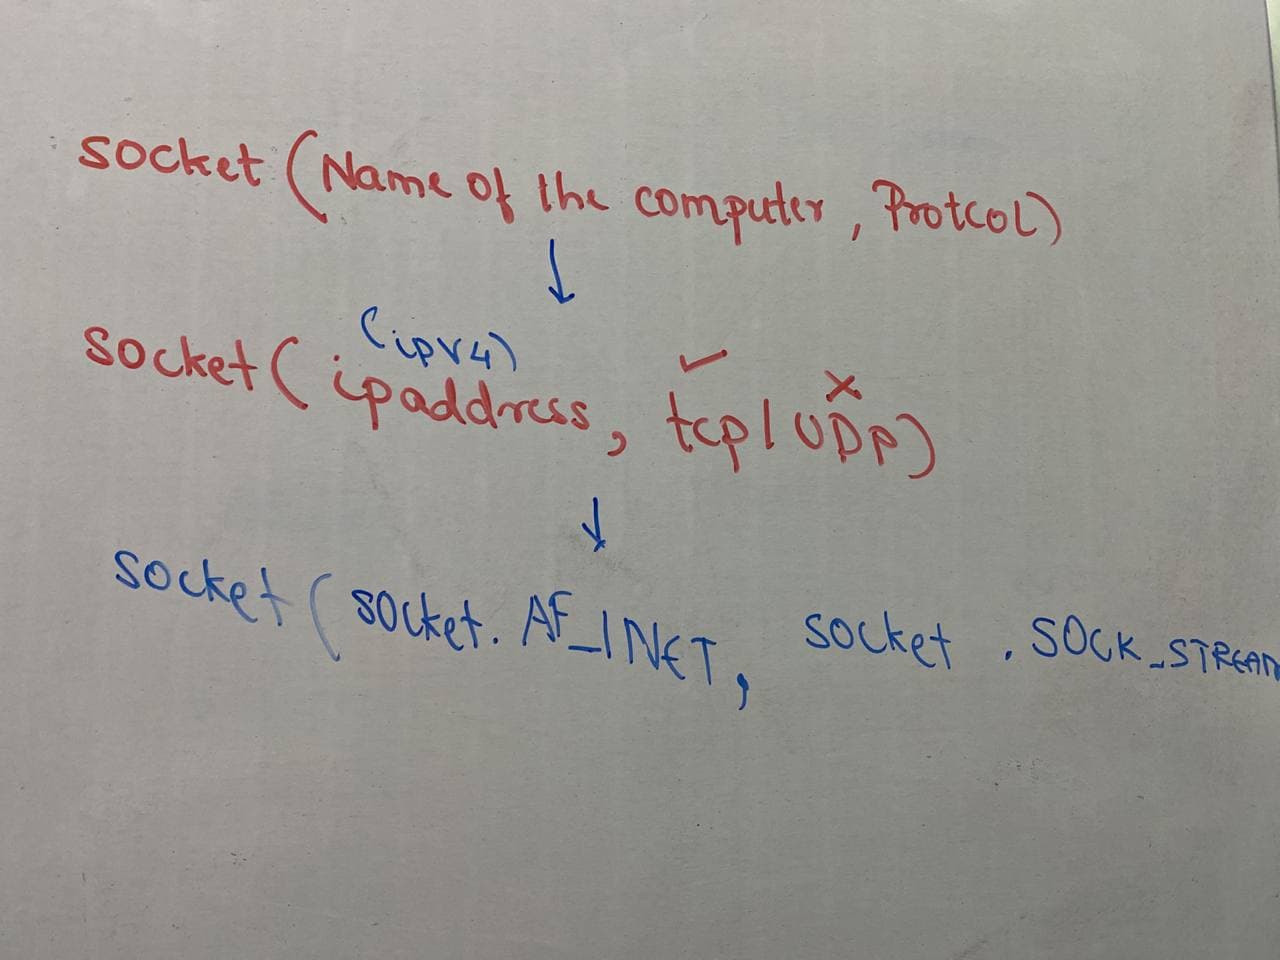 socket (Name of the computer, Protcol)
↓
(ipv4)
socket( ipaddress, tcp/UDP)
↓
socket( socket. AF_INET, socket . SOCK_STREAM